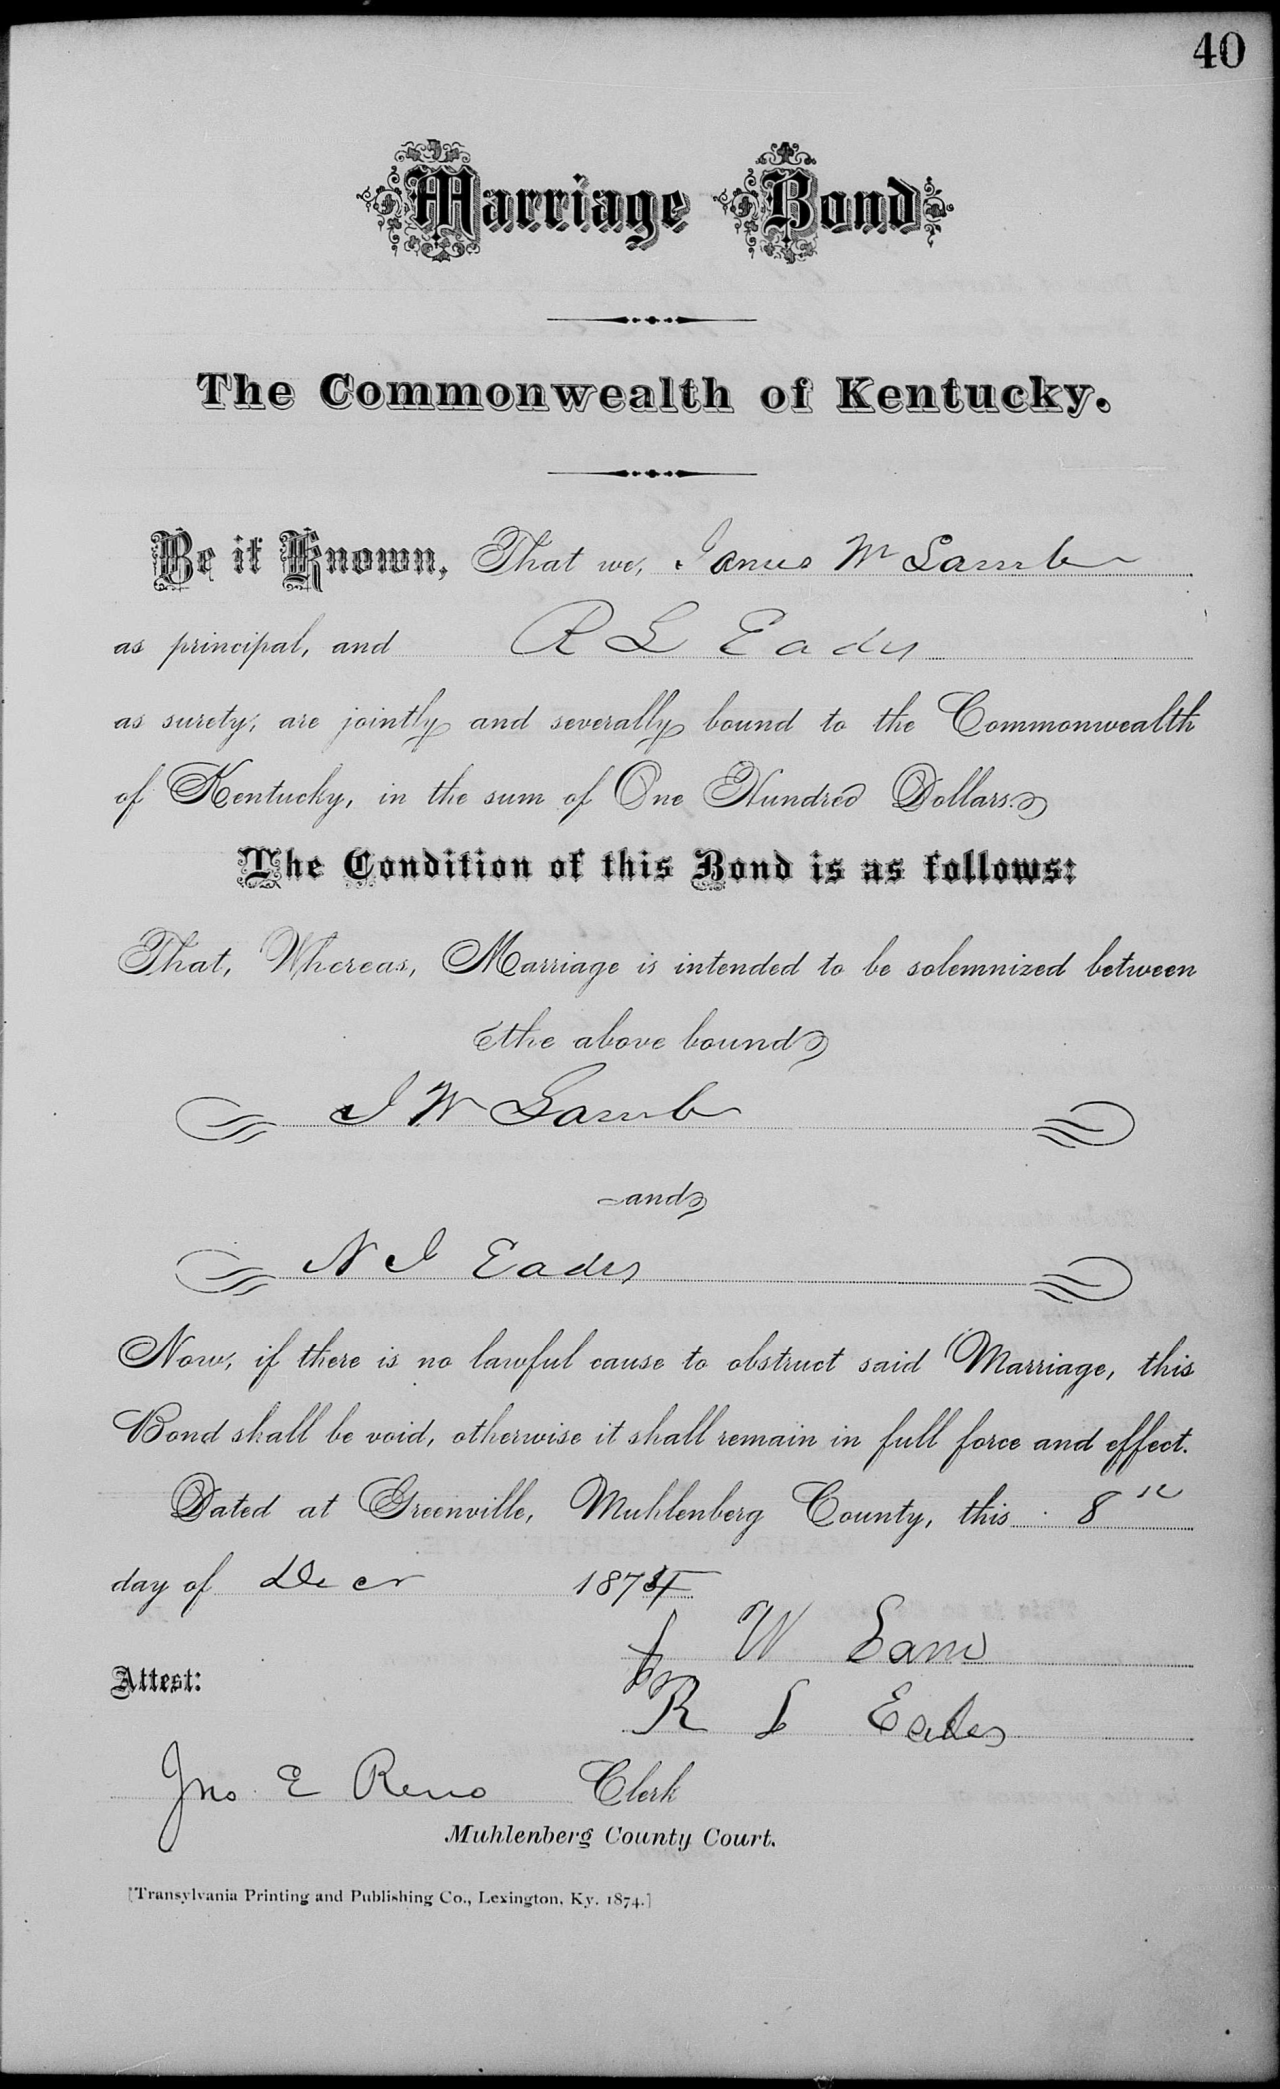 40
Marriage Bond
The Commonwealth of Kentucky.
Be it Known, That we, James W Lamb
as principal, and R L Eades
as surety, are jointly and severally bound to the Commonwealth
of Kentucky, in the sum of One Hundred Dollars.
The Condition of this Bond is as follows:
That, Whereas, Marriage is intended to be solemnized between
the above bound
J W Lamb
and
N J Eades
Now, if there is no lawful cause to obstruct said Marriage, this
Bond shall be void, otherwise it shall remain in full force and effect.
Dated at Greenville, Muhlenberg County, this 8"
day of Decr 1874
J W Lam
Attest:
R L Eades
Jno E Reno Clerk
Muhlenberg County Court.
[Transylvania Printing and Publishing Co., Lexington, Ky. 1874.]